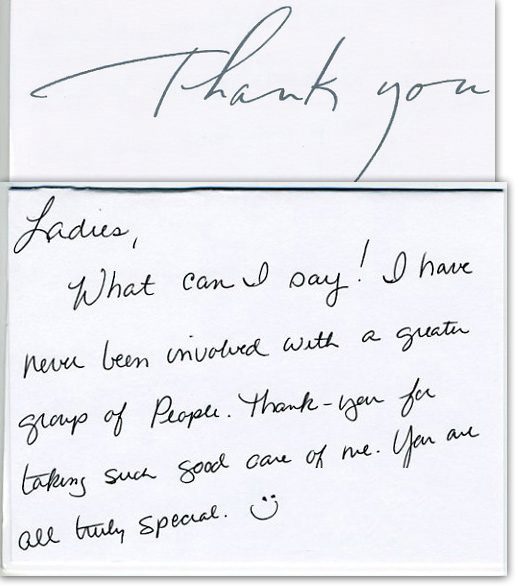 Thank you
Ladies,
What can I say! I have
never been involved with a greater
group of People. Thank-you for
taking such good care of me. You are
all truly special. :)